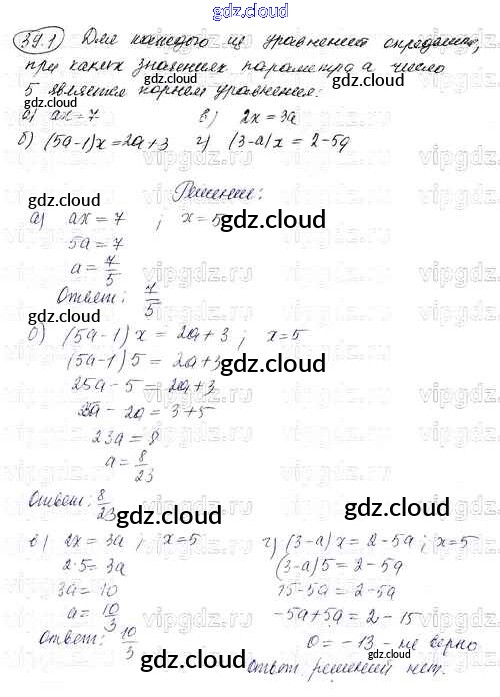 gdz.cloud
39.1 Для каждого из уравнений определите,
при каких значениях параметра a число
5 является корнем уравнения:
а) ax = 7 в) 2x = 3a
б) (5a-1)x = 2a+3 г) (3-a)x = 2-5a
Решение:
а) ax = 7 ; x = 5
5a = 7
a = 7/5
Ответ: 7/5
б) (5a-1)x = 2a+3; x=5
(5a-1)5 = 2a+3
25a - 5 = 2a+3
25a - 2a = 3+5
23a = 8
a = 8/23
Ответ: 8/23
в) 2x = 3a; x=5
2·5 = 3a
3a = 10
a = 10/3
Ответ: 10/3
г) (3-a)x = 2-5a; x=5
(3-a)5 = 2-5a
15-5a = 2-5a
-5a+5a = 2-15
0 = -13 - не верно
Ответ: решений нет.
gdz.cloud
vipgdz.ru